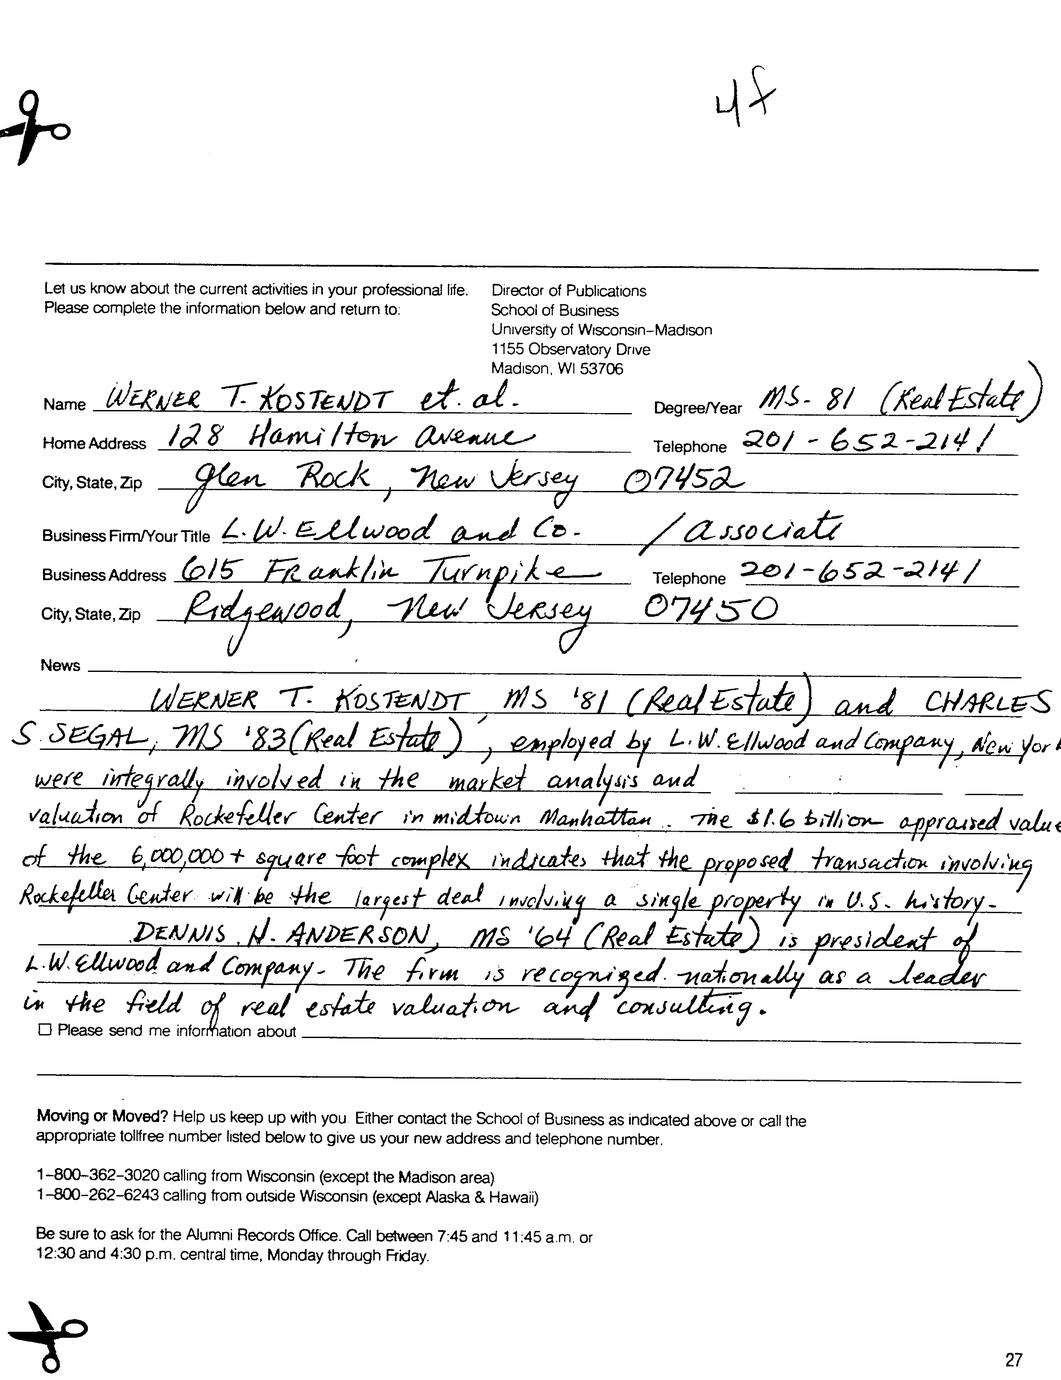 4f
Let us know about the current activities in your professional life.
Please complete the information below and return to:
Director of Publications
School of Business
University of Wisconsin–Madison
1155 Observatory Drive
Madison, WI 53706
Name WERNER T. KOSTENDT et. al. Degree/Year MS- 81 (Real Estate)
Home Address 128 Hamilton Avenue Telephone 201-652-2141
City, State, Zip Glen Rock, New Jersey 07452
Business Firm/Your Title L.W. Ellwood and Co. / Associate
Business Address 615 Franklin Turnpike Telephone 201-652-2141
City, State, Zip Ridgewood, New Jersey 07450
News
WERNER T. KOSTENDT, MS '81 (Real Estate) and CHARLES
S. SEGAL, MS '83 (Real Estate), employed by L.W. Ellwood and Company, New York
were integrally involved in the market analysis and
valuation of Rockefeller Center in midtown Manhattan. The $1.6 billion appraised value
of the 6,000,000+ square foot complex indicates that the proposed transaction involving
Rockefeller Center will be the largest deal involving a single property in U.S. history.
DENNIS H. ANDERSON, MS '64 (Real Estate) is president of
L.W. Ellwood and Company. The firm is recognized nationally as a leader
in the field of real estate valuation and consulting.
Please send me information about
Moving or Moved? Help us keep up with you. Either contact the School of Business as indicated above or call the
appropriate tollfree number listed below to give us your new address and telephone number.
1–800–362–3020 calling from Wisconsin (except the Madison area)
1–800–262–6243 calling from outside Wisconsin (except Alaska & Hawaii)
Be sure to ask for the Alumni Records Office. Call between 7:45 and 11:45 a.m. or
12:30 and 4:30 p.m. central time, Monday through Friday.
27